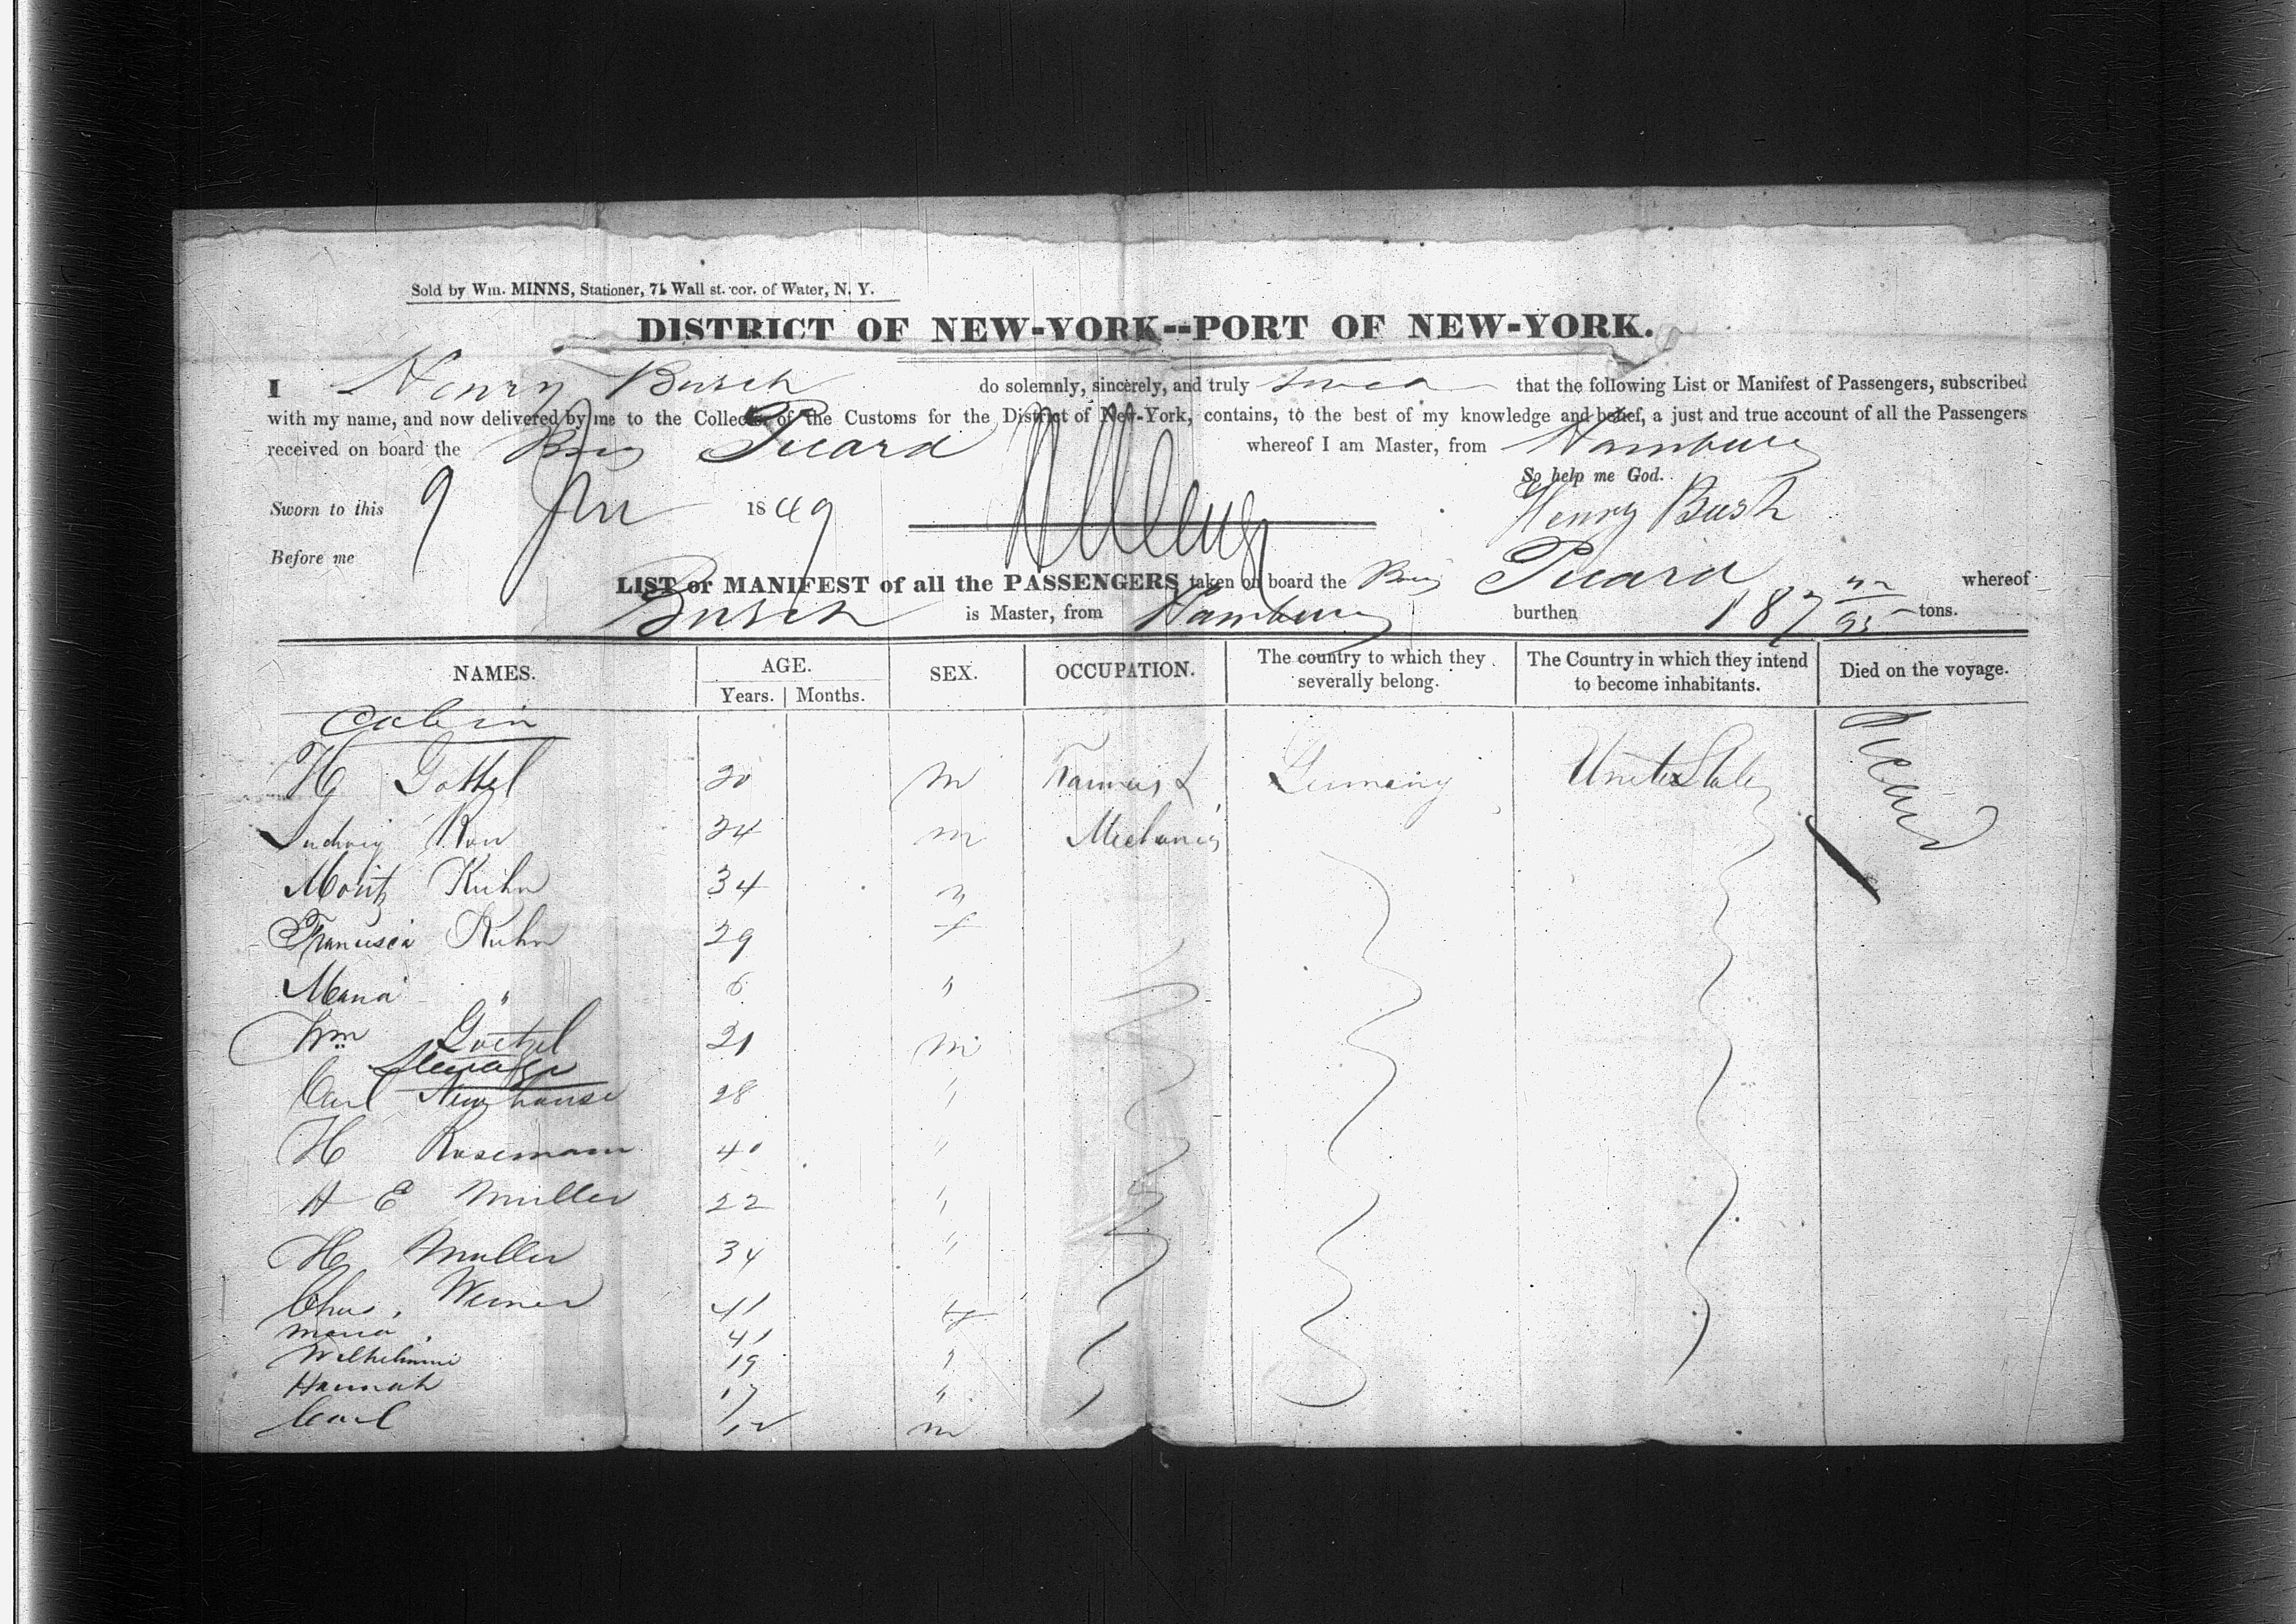 Sold by Wm. MINNS, Stationer, 71 Wall st. cor. of Water, N. Y.
DISTRICT OF NEW-YORK--PORT OF NEW-YORK.
I Henry Busch do solemnly, sincerely, and truly swear that the following List or Manifest of Passengers, subscribed
with my name, and now delivered by me to the Collector of the Customs for the District of New-York, contains, to the best of my knowledge and belief, a just and true account of all the Passengers
received on board the Brig Picard whereof I am Master, from Hamburg
So help me God.
Sworn to this 9 Jan 1849 Henry Bush
Before me
LIST or MANIFEST of all the PASSENGERS taken on board the Brig Picard whereof
Busch is Master, from Hamburg burthen 187 tons.
NAMES. AGE. SEX. OCCUPATION. The country to which they severally belong. The Country in which they intend to become inhabitants. Died on the voyage.
Years. Months.
Cabin
H Gottel 20 m Farmers & Germany United States
Ludwig Rau 34 m Mechanics
Moritz Kuhn 34 m
Francisca Kuhn 29 f
Maria " 6 "
Wm Goetzel 21 m
Steerage
Carl Newhause 28 "
H Rosemann 40 "
A E Muller 22 "
H Muller 34 "
Chs. Werner 41 f
Maria 41
Wilhelmine 19 "
Hannah 17 "
Carl 12 m